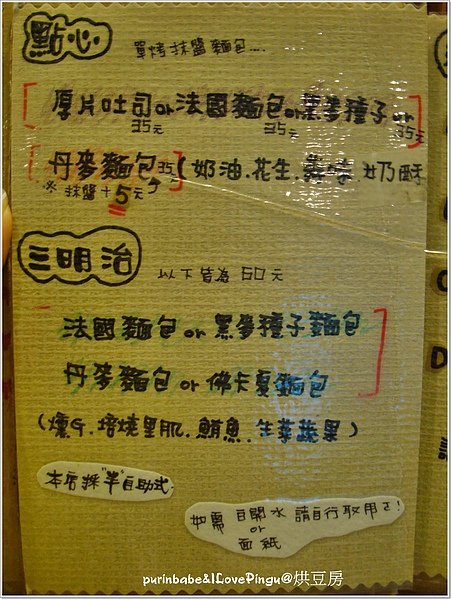 點心 單烤抹醬麵包....
厚片吐司or法國麵包or黑麥種子or
35元 35元 35元
丹麥麵包35(奶油.花生.
※抹醬+5元
三明治 以下皆為60元
法國麵包or黑麥種子麵包
丹麥麵包or佛卡夏麵包
(燻G.焙燒里肌.鮪魚.生菜蔬果)
本店採"半"自助式.
如需白開水請自行取用ㄛ!
or
面紙
purinbabe&ILovePingu@烘豆房